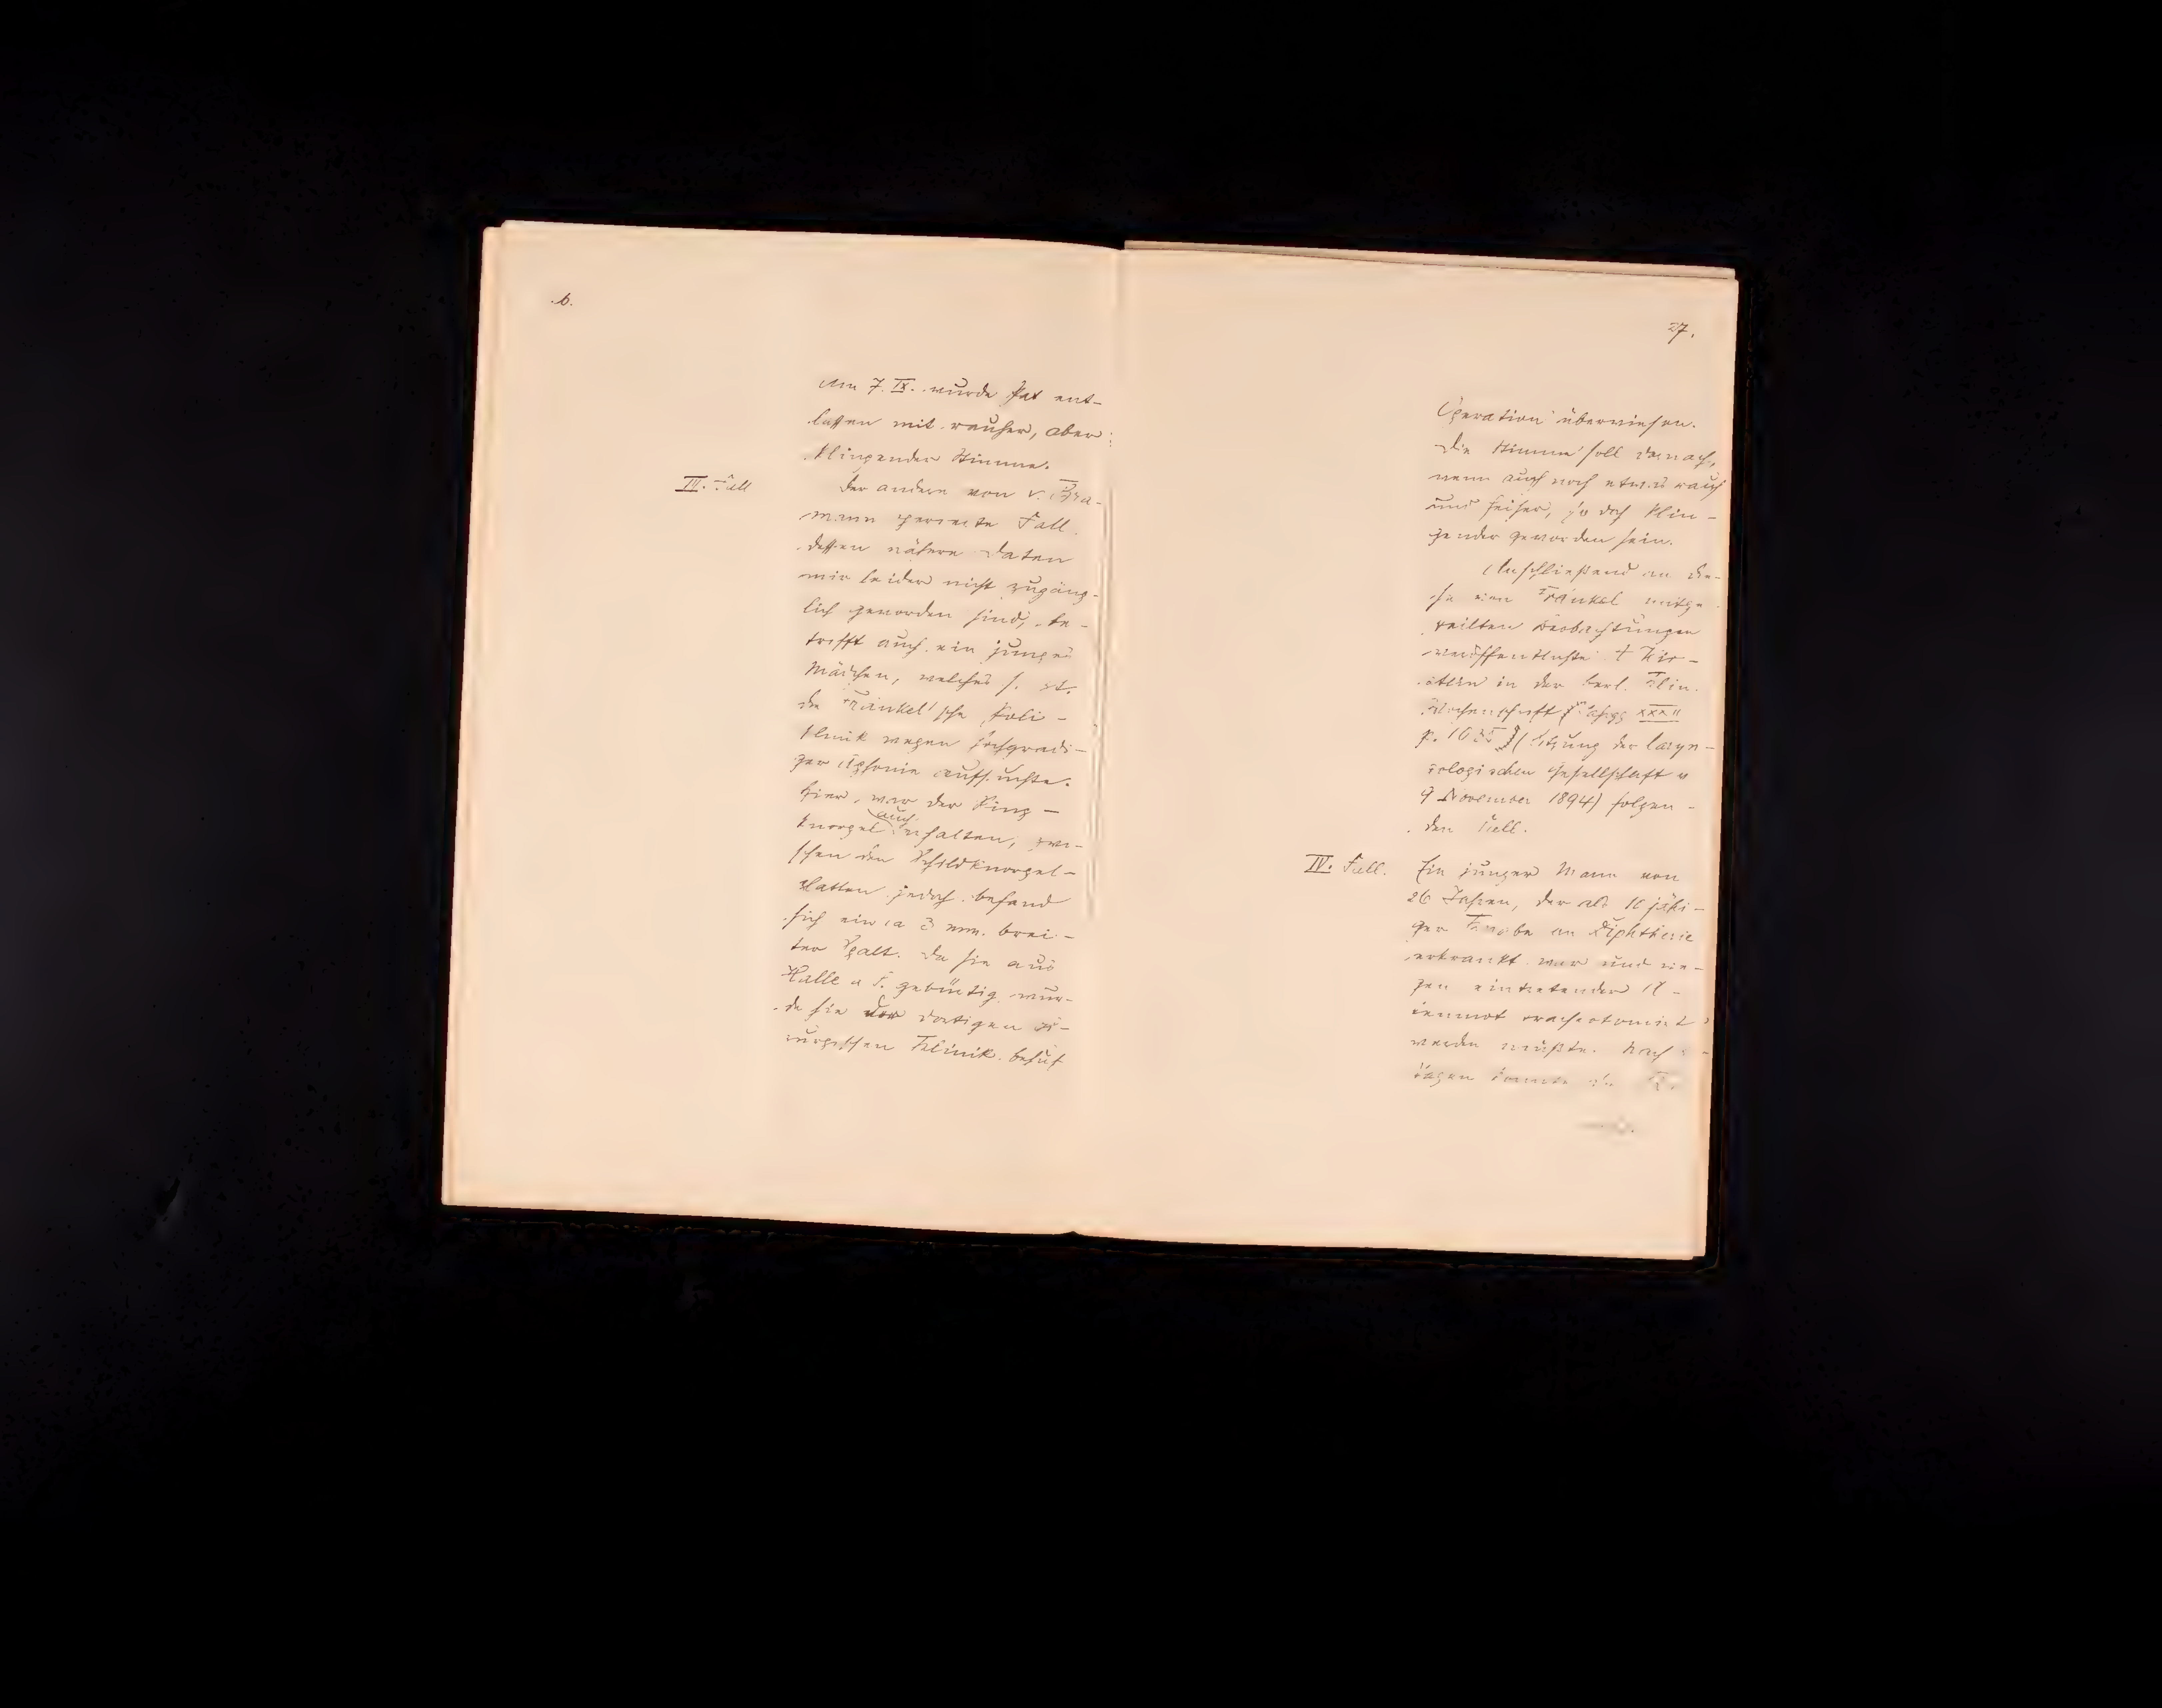 .6.
Am 7. IX. wurde Pat ent-
lassen mit rauher, aber
klingender Stimme.
III. Fall
Der andere von v. Bra-
mann operierte Fall
dessen nähere Daten
mir leider nicht zugäng-
lich geworden sind, be-
trifft auch ein junges
Mädchen, welches s. Zt.
die Fränkel'sche Poli-
klinik wegen hochgradi-
ger Aphonie aufsuchte.
Hier war der Ring-
auch
knorpel erhalten, zwi-
schen den Schildknorpel-
platten jedoch befand
sich ein ca 3 mm. brei-
ter Spalt. Da sie aus
Halle a S. gebürtig wur-
de sie der dortigen chi-
rurgischen Klinik behuf
27.
Operation überwiesen.
Die Stimme soll darnach,
wenn auch noch etwas rauh
und heiser, so doch klin-
gender geworden sein.
Anschließend an die-
se von Fränkel mitge
teilten Beobachtungen
veröffentlichte
in der Berl. Klin.
Wochenschrift Jahrgg XXXII
p. (Sitzung der laryn-
ologischen Gesellschaft v
9 November 1894) folgen-
den Fall.
IV. Fall.
Ein junger Mann von
26 Jahren, der als jähri-
ger Knabe an Diphtherie
erkrankt war und we-
gen eintretender A-
temnot tracheotomiert
werden mußte. Nach
Tagen konnte die